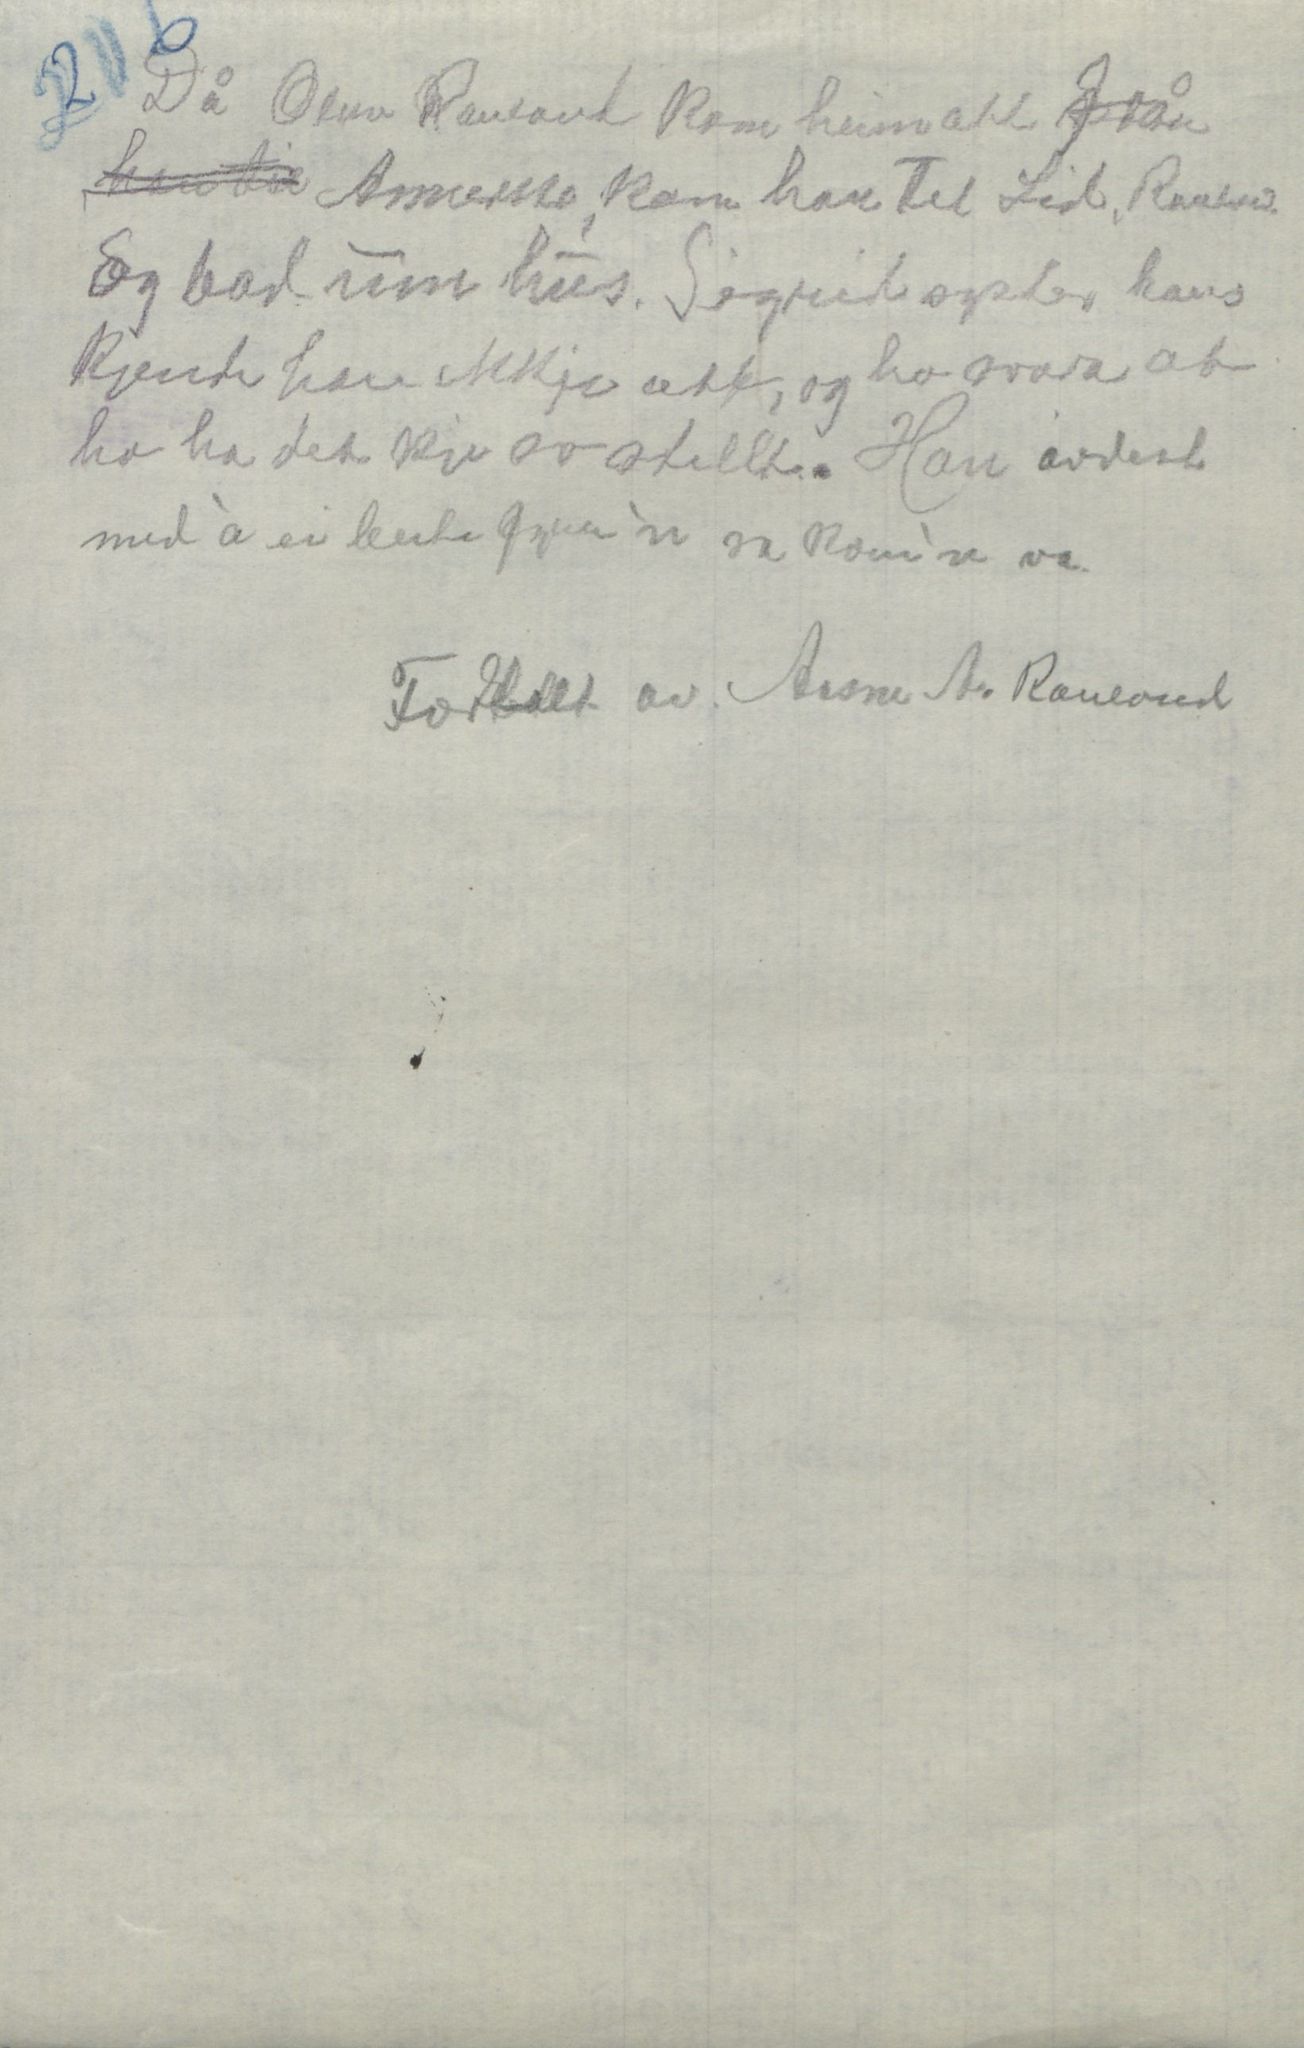 216
Då Olav Rauland kom heim att från
Amerika, kom han tel Lid, Raulan.
Og bad um hus. Sigrid syster hans
kjende han ikkje att, og ho svara at
ho ha det kje so stellt. Han
med å ei fyrr 'n va.
Fortalt av. Aasne A. Rauland